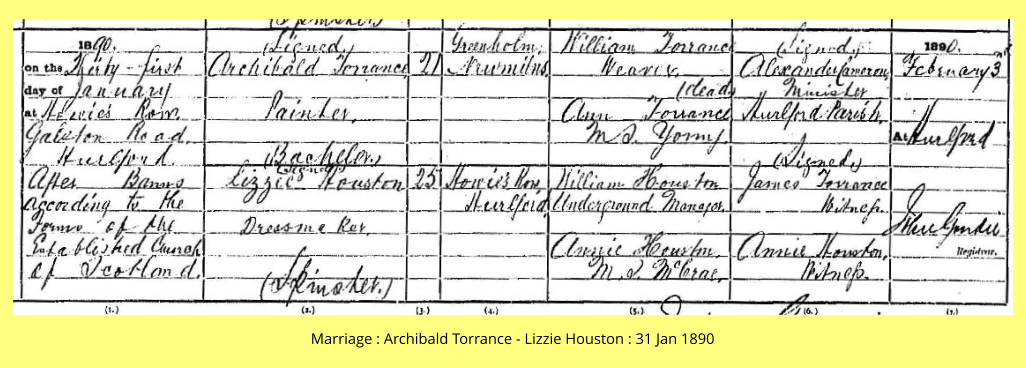 1890.
on the Thirty-first
day of January
at Howie's Row
Galston Road
Hurlford.
After Banns
according to the
Forms of the
Established Church
of Scotland.
(Signed)
Archibald Torrance
Painter,
(Bachelor)
(Signed)
Lizzie Houston
Dressmaker
(Spinster.)
21
25
Greenholm,
Newmilns
Howie's Row,
Hurlford
William Torrance
Weaver,
(dead)
Ann Torrance
M.S. Young
William Houston
Underground Manager.
Annie Houston,
M.S. McCrae,
(Signed)
Alexander Cameron
Minister
Hurlford Parish.
(Signed)
James Torrance
Witness.
Annie Houston,
Witness.
1890.
February 3
At Hurlford
Registrar.
(1.) (2.) (3.) (4.) (5.) (6.) (7.)
Marriage : Archibald Torrance - Lizzie Houston : 31 Jan 1890